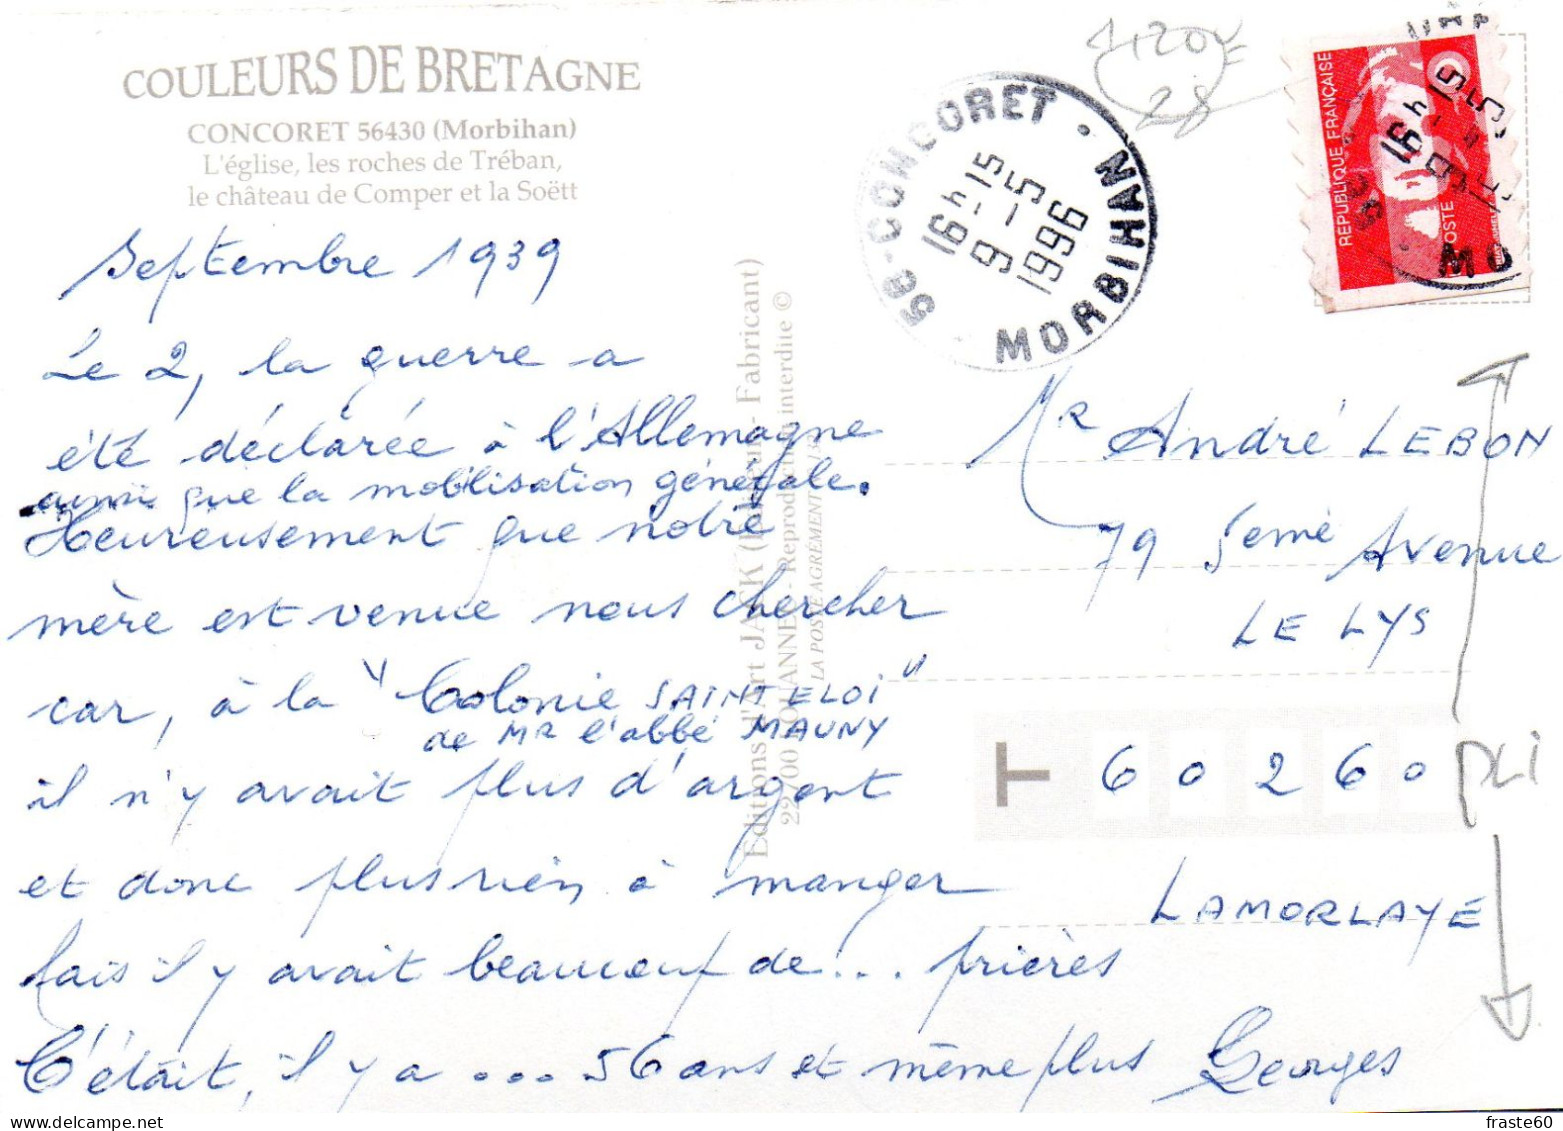 COULEURS DE BRETAGNE
CONCORET 56430 (Morbihan)
L'église, les roches de Tréban,
le château de Comper et la Soëtt
Septembre 1939
Le 2, la guerre a
été déclarée à l'Allemagne
ainsi que la mobilisation générale.
Heureusement que notre
mère est venue nous chercher
car, à la "Colonie SAINT ELOI"
de MR l'abbé MAUNY
il n'y avait plus d'argent
et donc plus rien à manger
Mais il y avait beaucoup de... prières
C'était, il y a ... 56 ans et même plus Georges
Editions d'Art JACK - Fabricant)
22700 LOUANNEC - Reproduction interdite ©
LA POSTE AGRÉMENT
1,20€
28
56-CONCORET · MORBIHAN
16h15
9-5
1996
RÉPUBLIQUE FRANÇAISE
POSTE
16h15
MO
MR André LEBON
79 5eme Avenue
LE LYS
T 60260
LAMORLAYE
PLI
fraste60
www.delcampe.net